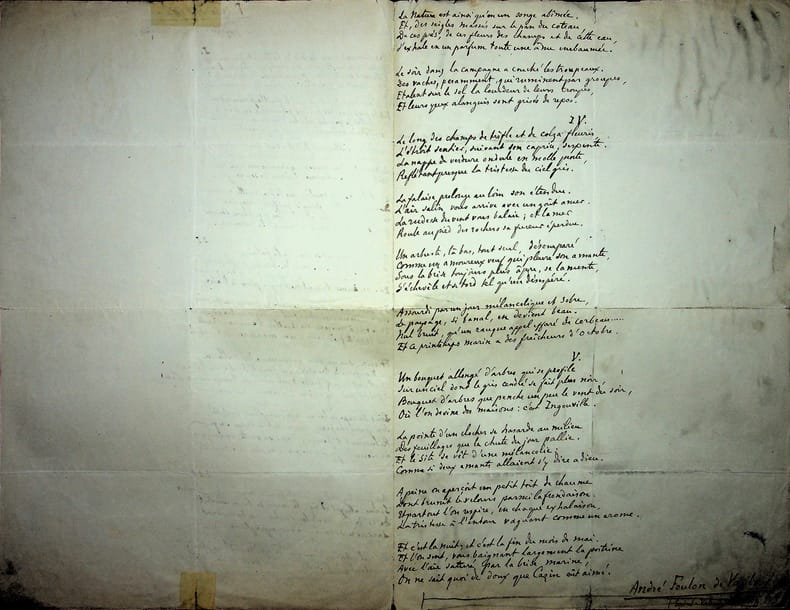 La Nature est ainsi qu'en un songe abîmée.
Et, des seigles massés sur le pan du coteau
De ces prés, de ces fleurs des champs et de cette eau,
S'exhale en un parfum toute une âme embaumée.
Le soir dans la campagne a couché les troupeaux.
Des vaches, pesamment, qui ruminent par groupes,
Etalent sur le sol la lourdeur de leurs croupes,
Et leurs yeux alanguis sont grisés de repos.
IV.
Le long des champs de trèfle et de colza fleuris
L'étroit sentier, suivant son caprice, serpente.
La nappe de verdure ondule en molle pente
Reflétant presque la tristesse du ciel gris.
La falaise prolonge au loin son étendue.
L'air salin vous arrive avec un goût amer.
La rudesse du vent vous balaie ; et la mer
Roule au pied des rochers sa fureur éperdue.
Un arbuste, là-bas, tout seul, désemparé
Comme un amoureux veuf qui pleure son amante,
Sous la brise toujours plus âpre, se lamente,
S'échevèle et se tord tel qu'un désespéré.
Assourdi par un jour mélancolique et sobre,
Le paysage, si banal, en devient beau.
Nul bruit, qu'un rauque appel effaré de corbeau.....
Et ce printemps marin a des fraîcheurs d'Octobre.
V.
Un bouquet allongé d'arbres qui se profile
Sur un ciel dont le gris cendré se fait plus noir,
Bouquet d'arbres que penche un peu le vent du soir,
Où l'on devine des maisons : c'est Ingouville.
La pointe d'un clocher se hasarde au milieu
Des feuillages que la chute du jour pallie.
Et le site se vêt d'une mélancolie
Comme si deux amants allaient s'y dire adieu.
A peine on aperçoit un petit toit de chaume
Dont brunit le velours parmi la frondaison.
Et partout l'on respire, en chaque exhalaison,
La tristesse à l'entour vaguant comme un arome.
Et c'est la nuit ; et c'est la fin du mois de mai.
Et l'on sent, vous baignant largement la poitrine
Avec l'air saturé par la brise marine,
On ne sait quoi de doux que Cazin eût aimé.
André Foulon de